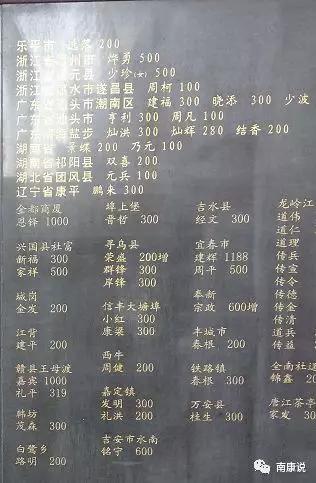 乐平市 逃落 200
浙江省 州市 烨勇 500
浙江省 元县 少珍(女) 500
浙江省 水市遂昌县 周柯 100
广东省汕头市潮南区 建福 300 晓添 300 少波
广东省汕头市 亨利 300 周凡 100
广东 海盐步 灿洪 300 灿辉 280 结香 200
湖南省 景蝶 200 乃元 100
湖南省祁阳县 双喜 200
湖北省团风县 元兵 100
辽宁省康平 鹏来 300
金都商厦
恩铎 1000
兴国县社富
新福 300
家祥 500
城岗
金发 200
江背
建平 200
赣县王母渡
嘉宾 1000
礼平 319
韩坊
茂森 300
白鹭乡
路明 200
埠上堡
晋哲 300
寻乌县
荣盛 200增
群锋 300
岸锋 300
信丰大塘埠
小红 300
康梁 300
西牛
周健 200
嘉定镇
发明 300
礼洪 200
吉安市水南
铭宁 600
吉水县
经文 300
宜春市
建辉 1188
周平 500
奉新
宗政 600增
丰城市
春根 200
铁路镇
春根 300
万安县
桂生 300
龙岭江
道伟
道仁
道理
传兵
传宣
传令
传德
传金
传清
道兵
道益
全南社迳
锦鑫 20
唐江茶亭
家发 30
南康说